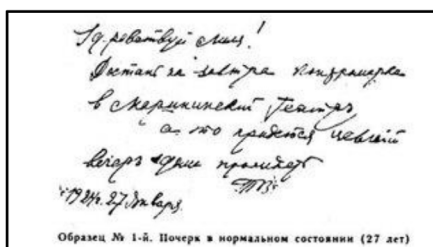 Здравствуй Миля!
Достань на завтра контрамарка
в Мариинский Театръ
а то придется целый
вечер дома
1924г. 27 Января.
Образец № 1-й. Почерк в нормальном состоянии (27 лет)